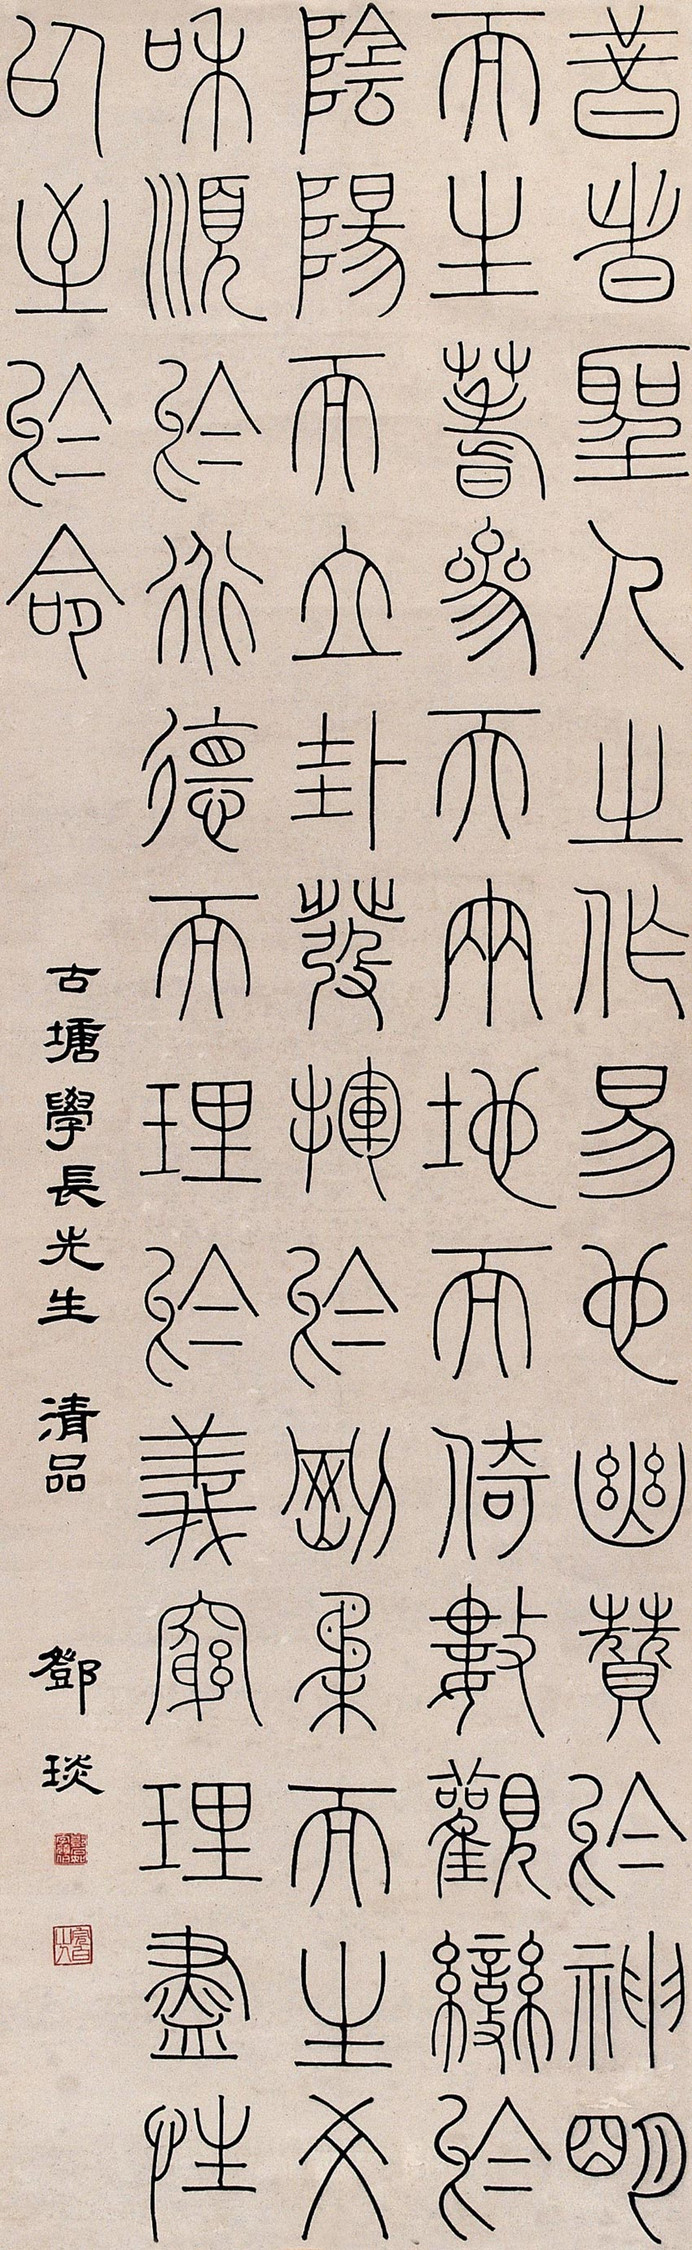 昔者聖人之作易也幽贊於神明
而生蓍參天兩地而倚數觀變於
陰陽而立卦發揮於剛柔而生爻
和順於道德而理於義窮理盡性
以至於命
古塘學長先生 清品 鄧琰
完白山人